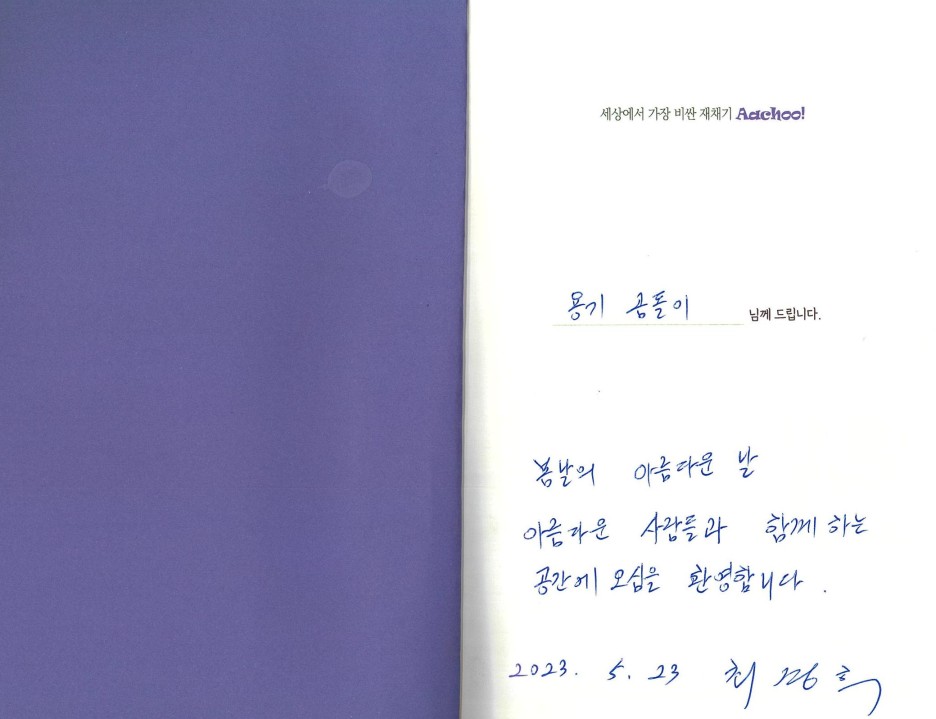 세상에서 가장 비싼 재채기 Aachoo!
용기 곰돌이 님께 드립니다.
봄날의 아름다운 날
아름다운 사람들과 함께 하는
공간에 오심을 환영합니다.
2023. 5. 23 최